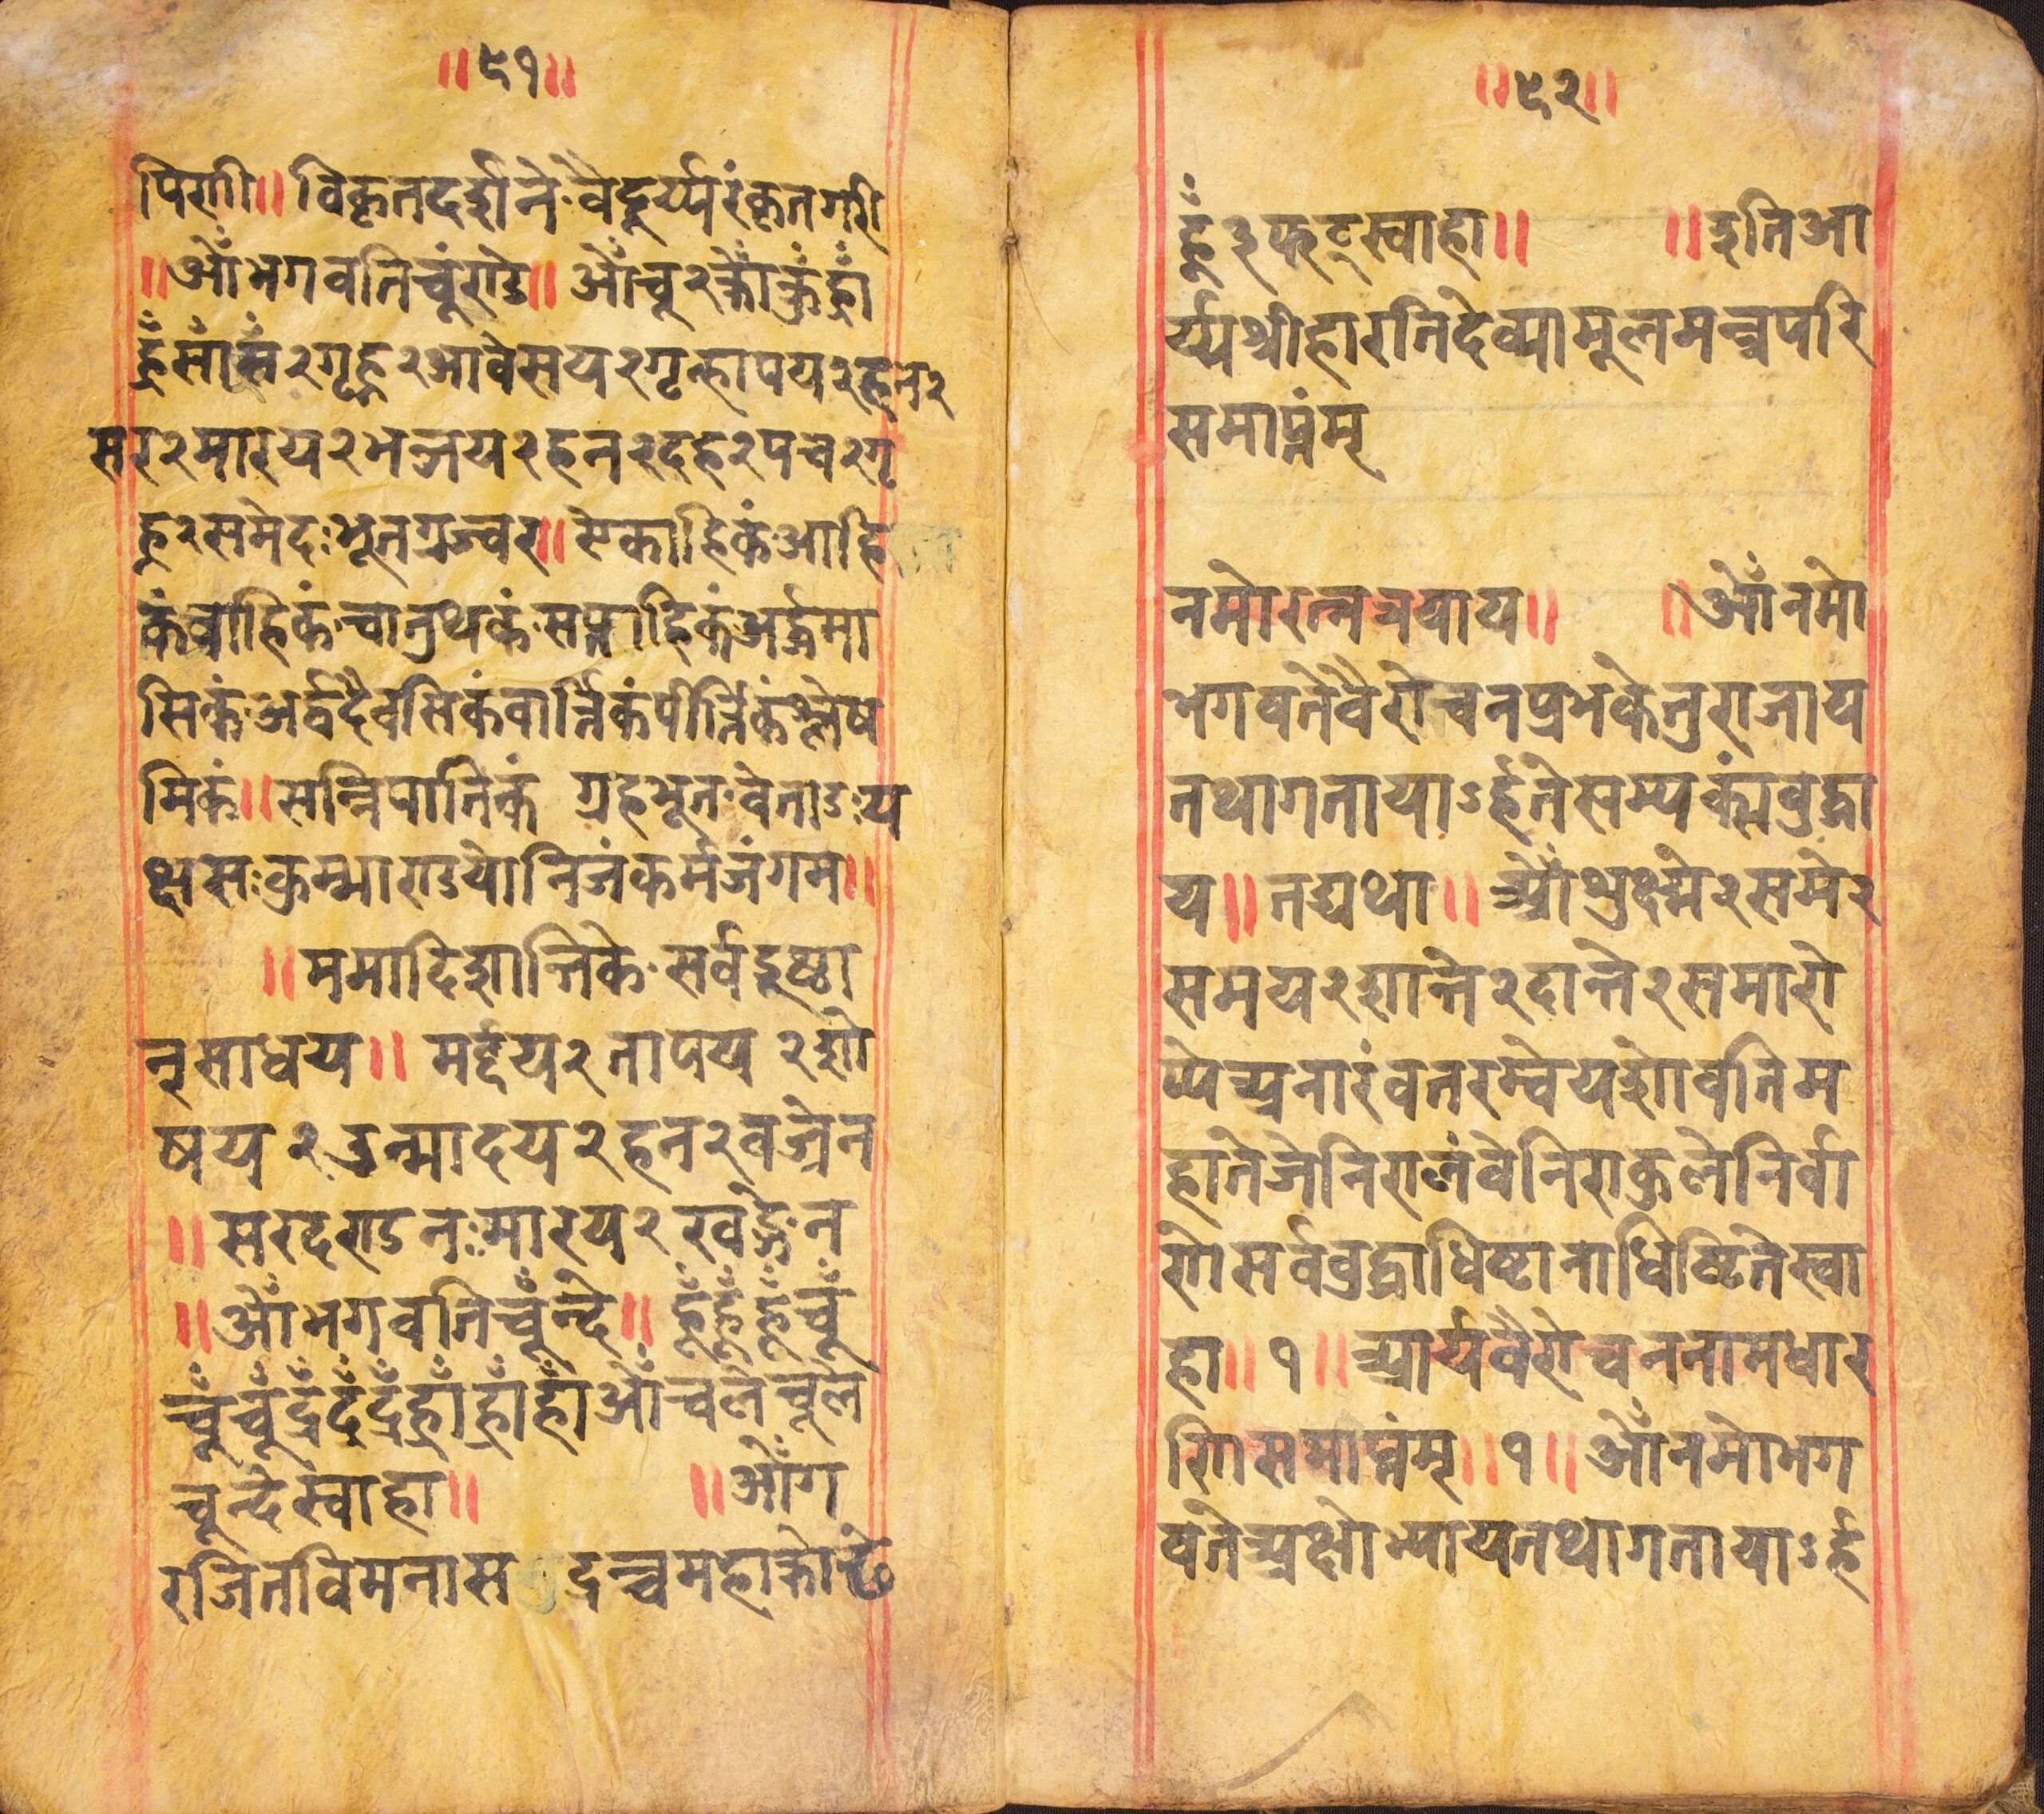 ॥९१॥
पिणी॥ विकृतदर्शने वैदूर्य्यरंकृतगरी
॥ओँ भगवतिचूंण्डे॥ ओँ चू२क्रोँक्रुंह्राँ
ह्रँसाँसँ२गृह्ण२आवेसय२गृह्नापय२हन२
सर२मारय२भञ्जय२हन२दह२पच२गृ
ह्ण२समेदःभूतग्रज्वर॥ एकाहिकं आहि
कंत्राहिकं चातुथकं सप्ताहिकं अर्द्धमा
सिकं अर्द्धदैवसिकं वार्त्तिकं पीर्त्तिकं श्लेष
मिकं॥ सन्निपातिकं ग्रहभूत वेताड य
क्षसःकुम्भाण्डयोनिजंकर्मजंगम॥
॥ममादिशान्तिके सर्वदुष्टा
न् साधय॥ मर्द्दय२तापय२शो
षय२उन्मादय२हन२वज्रेन
॥सरदण्डनःमारय२खड्गेन
॥ओँ भगवतिचूँन्दे॥ हूँहूँहूँचूँ
चूँचूँद्रँद्रँद्रँह्राँह्राँह्राँओँ चलेचूले
चून्देस्वाहा॥ ॥ओँ ग
रजितविमनास द्रन्त्वमहाक्रो
॥९२॥
हूँ३फट्स्वाहा॥ ॥इतिआ
र्य्यश्रीहारतिदेव्यामूलमन्त्रपरि
समाप्तंम्
नमोरत्नत्रयाय॥ ॥ओँ नमो
भगवतेवैरोचनप्रभकेतुराजाय
तथागतायाऽर्हतेसम्यक्संवुद्धा
य॥तद्यथा॥ ओँ शुक्ष्मे२समे२
समय२शान्ते२दान्ते२समारो
प्येअनारंवतरम्वेयशोवतिम
हातेजेनिरालंवेनिराकुलेनिर्वा
णेसर्ववुद्धाधिष्टानाधिष्टितेस्वा
हा॥१॥ आर्यवैरोचननामधार
णिसमाप्तंम्॥१॥ओँ नमोभग
वतेअक्षोभ्यायतथागतायाऽर्ह